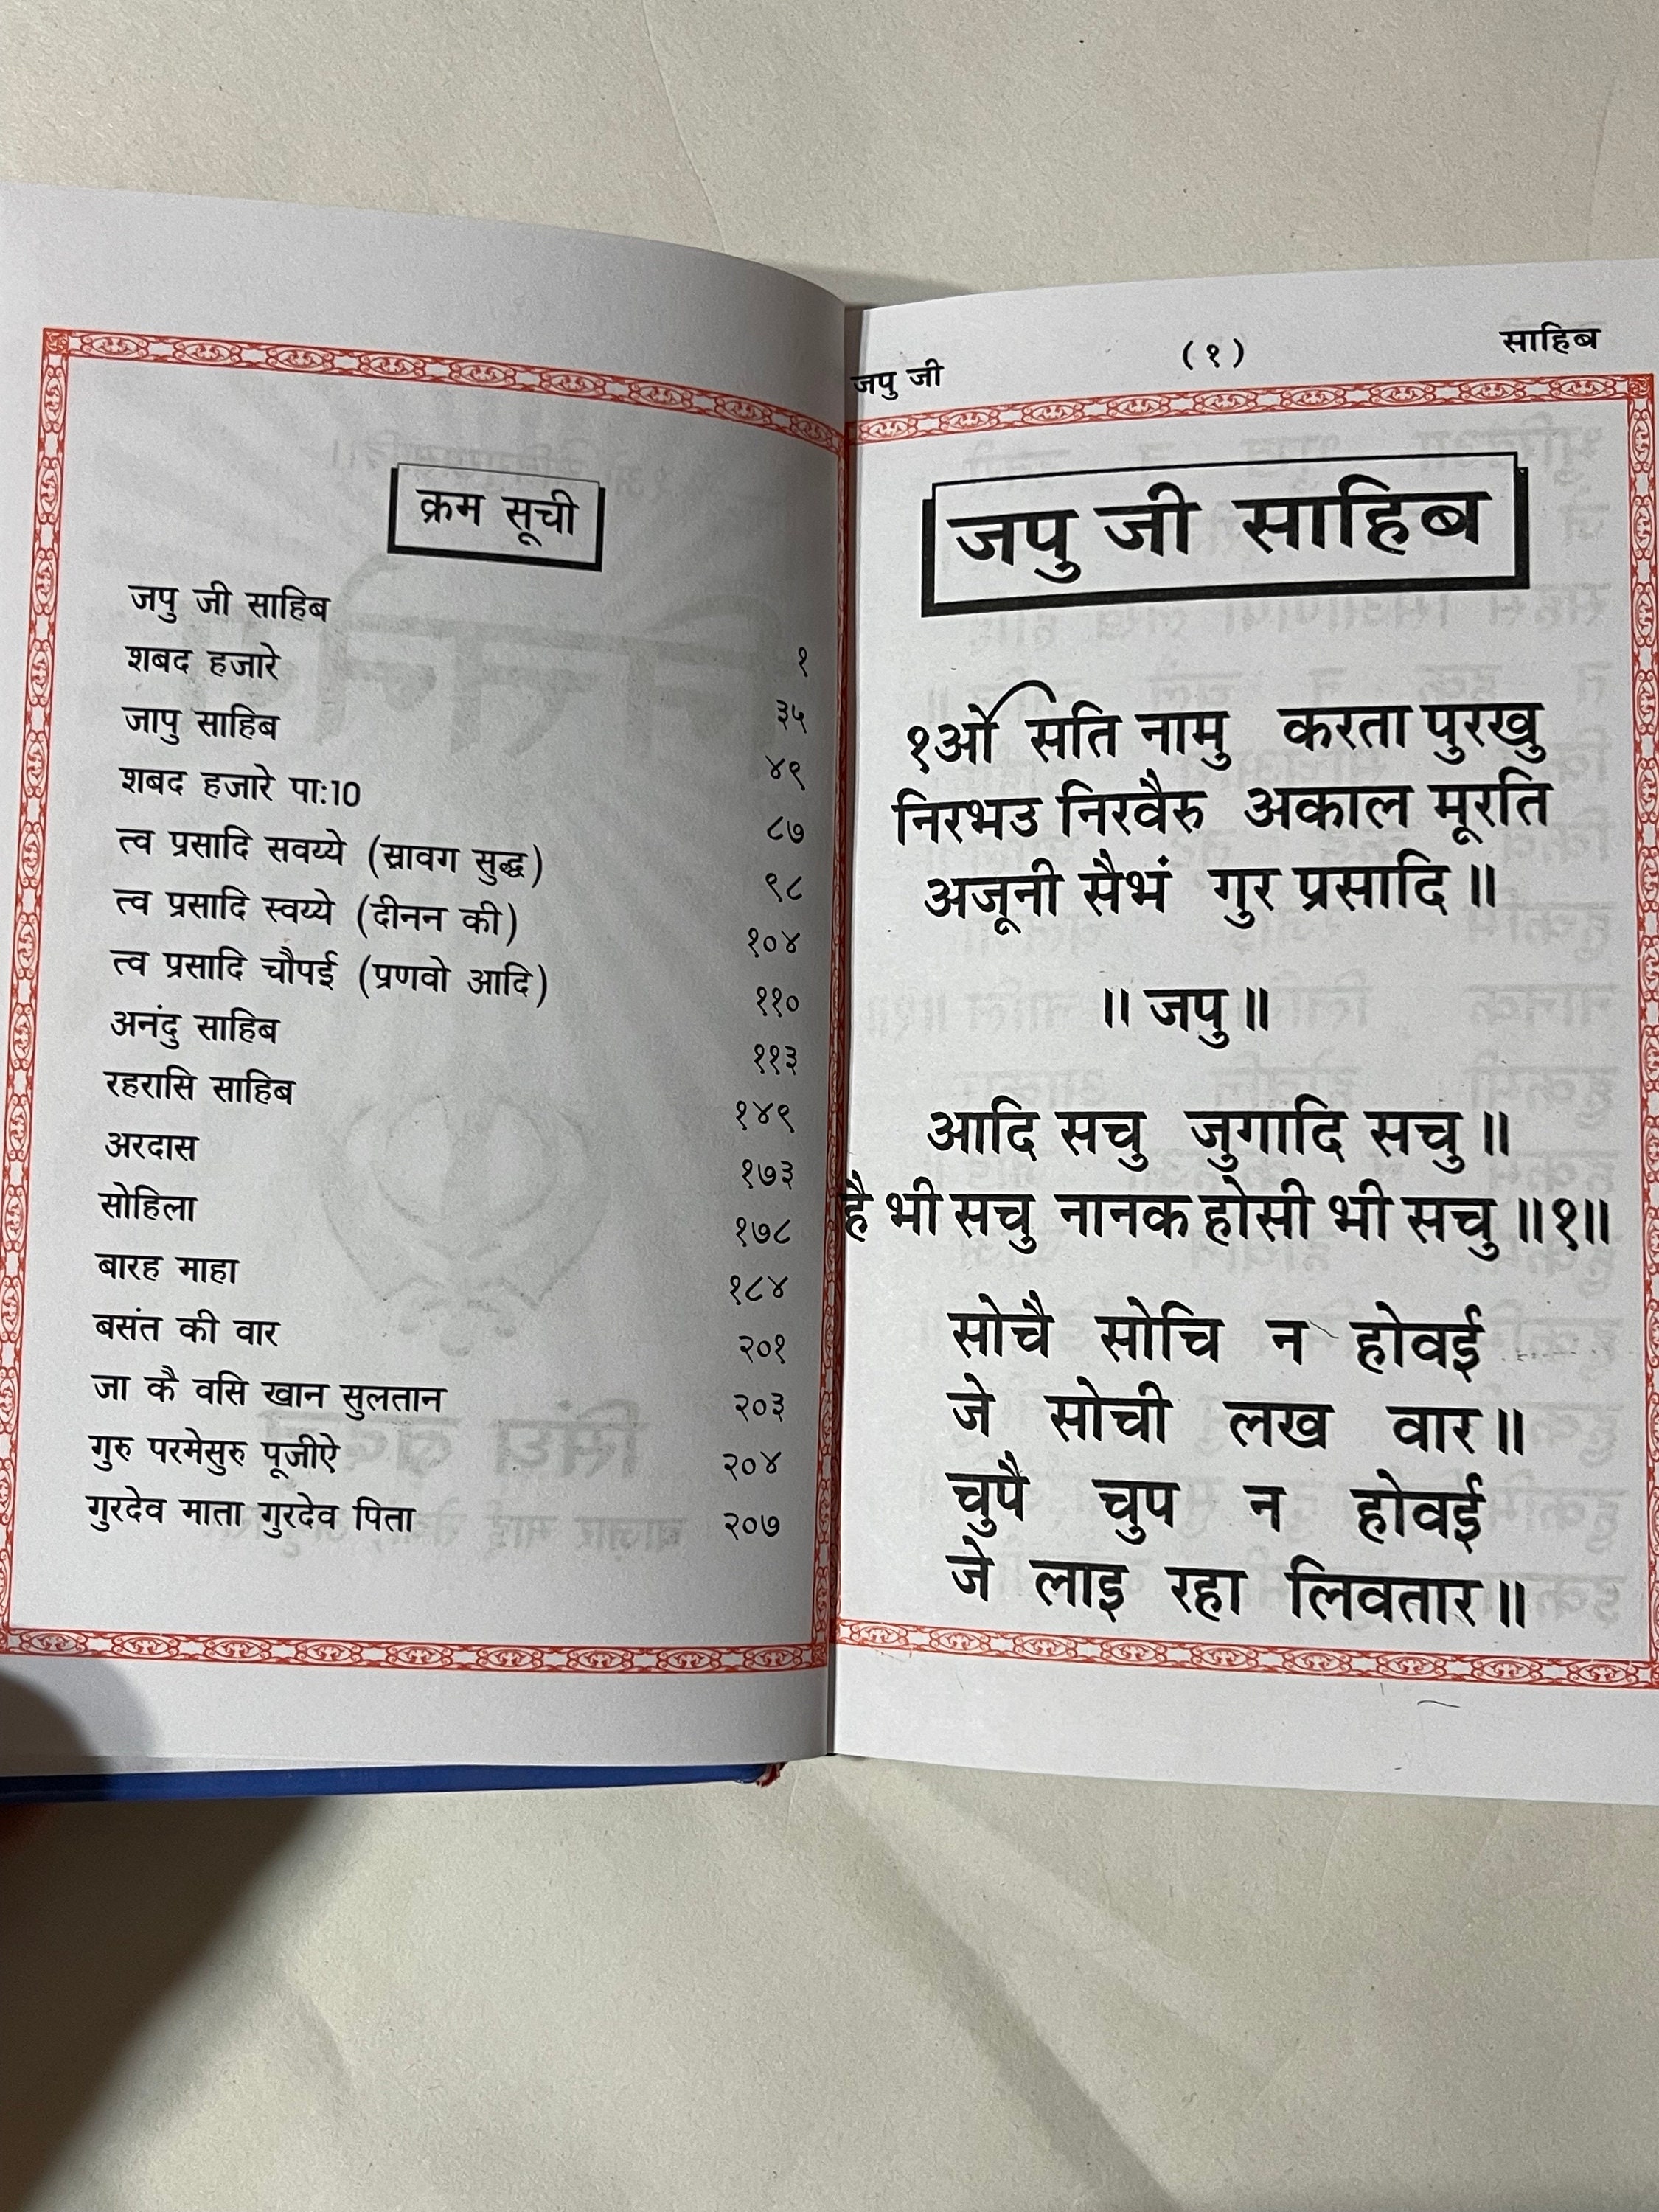 क्रम सूची
जपु जी साहिब १
शबद हजारे ३५
जापु साहिब ४९
शबद हजारे पा:10 ८७
त्व प्रसादि सवय्ये (स्रावग सुद्ध) ९८
त्व प्रसादि स्वय्ये (दीनन की) १०४
त्व प्रसादि चौपई (प्रणवो आदि) ११०
अनंदु साहिब ११३
रहरासि साहिब १४९
अरदास १७३
सोहिला १७८
बारह माहा १८४
बसंत की वार २०१
जा कै वसि खान सुलतान २०३
गुरु परमेसुरु पूजीऐ २०४
गुरदेव माता गुरदेव पिता २०७
जपु जी (१) साहिब
जपु जी साहिब
१ओ सति नामु करता पुरखु
निरभउ निरवैरु अकाल मूरति
अजूनी सैभं गुर प्रसादि ॥
॥ जपु ॥
आदि सचु जुगादि सचु ॥
है भी सचु नानक होसी भी सचु ॥१॥
सोचै सोचि न होवई
जे सोची लख वार ॥
चुपै चुप न होवई
जे लाइ रहा लिवतार ॥